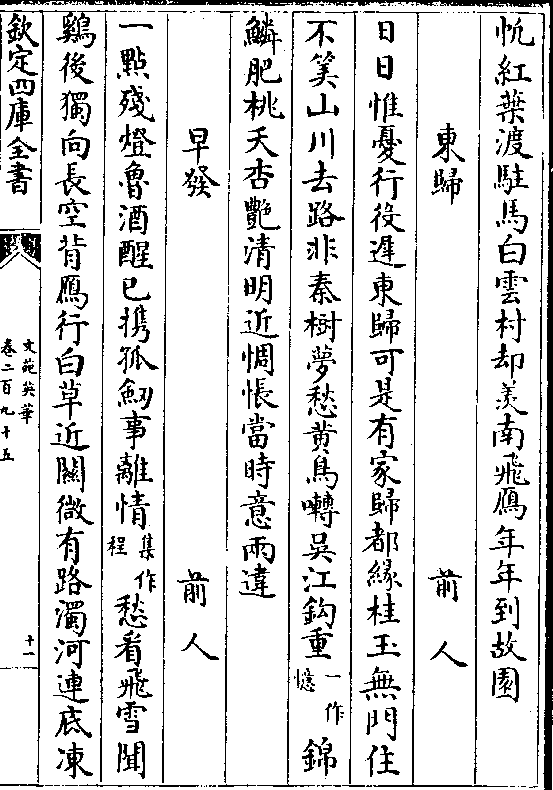 忱紅葉渡駐馬白雲村却羨南飛鴈年年到故園
東歸 前人
日日惟憂行役遲東歸可是有家歸都緣桂玉無門住
不筭山川去路非秦樹夢愁黄鳥囀吳江鈎重一作憶錦
鱗肥桃夭杏艶清明近惆悵當時意兩違
早發 前人
一點殘燈魯酒醒已携孤劒事離情集作程愁看飛雪聞
鷄後獨向長空背鴈行白草近關微有路濁河連底凍
欽定四庫全書
文苑英華
卷二百九十五
十一